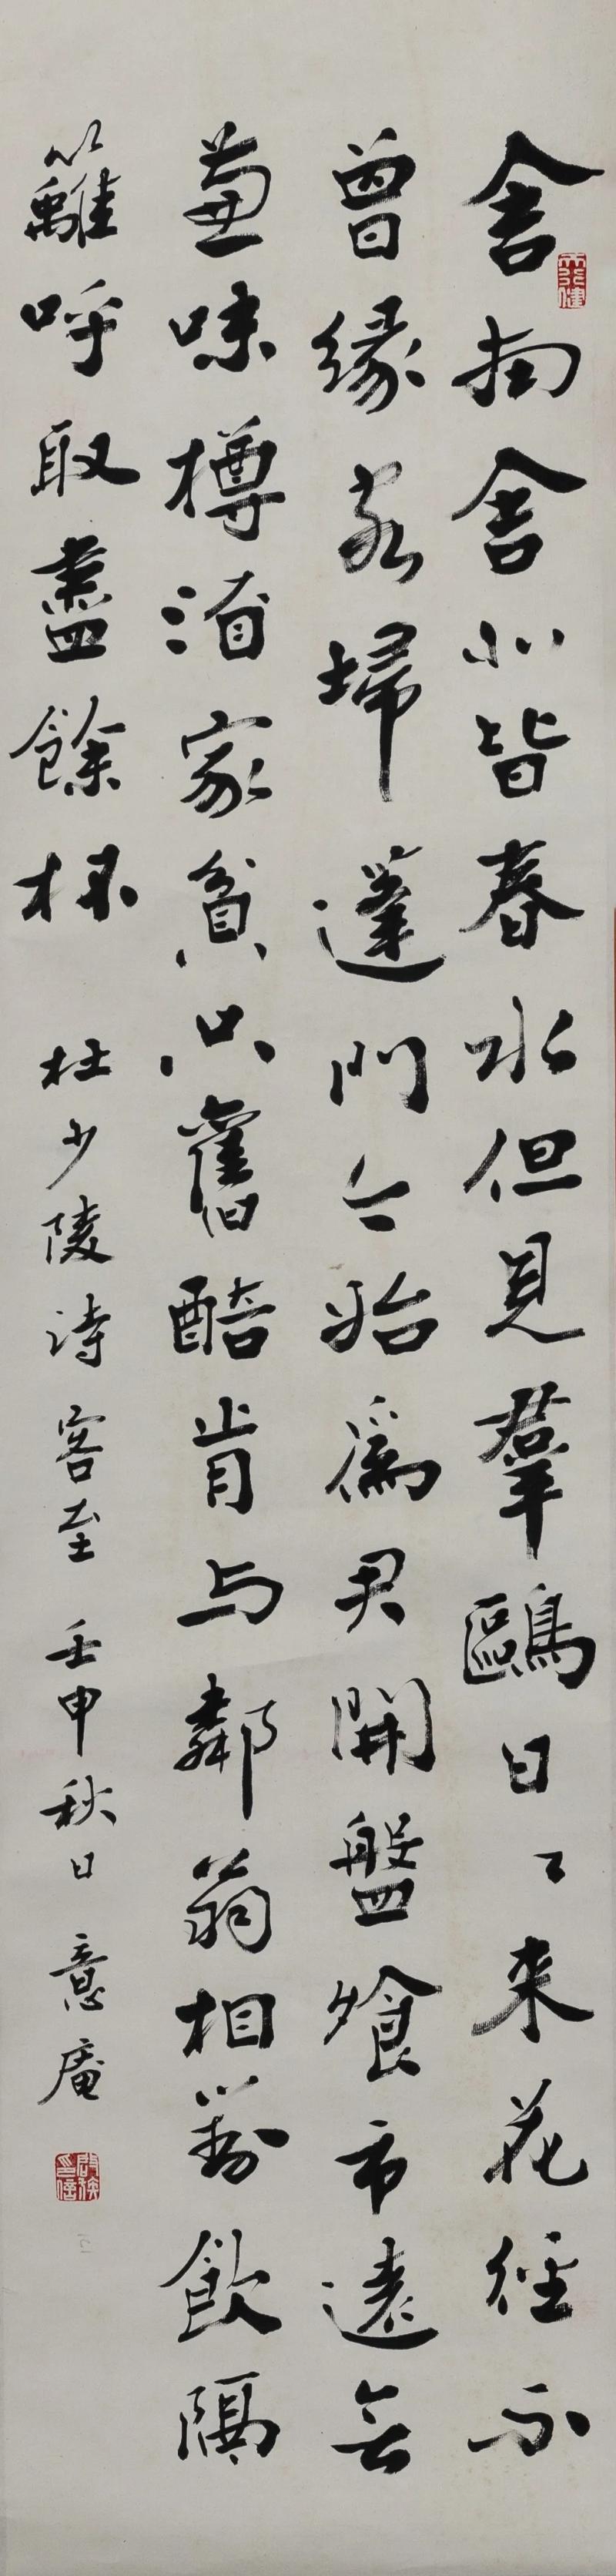 舍南舍北皆春水但見羣鷗日〻來花徑不
曾緣客掃蓬門今始爲君開盤飧市遠無
兼味樽酒家貧只舊醅肯与鄰翁相對飲隔
籬呼取盡餘杯 杜少陵詩 客至 壬申秋日 意庵
天行健